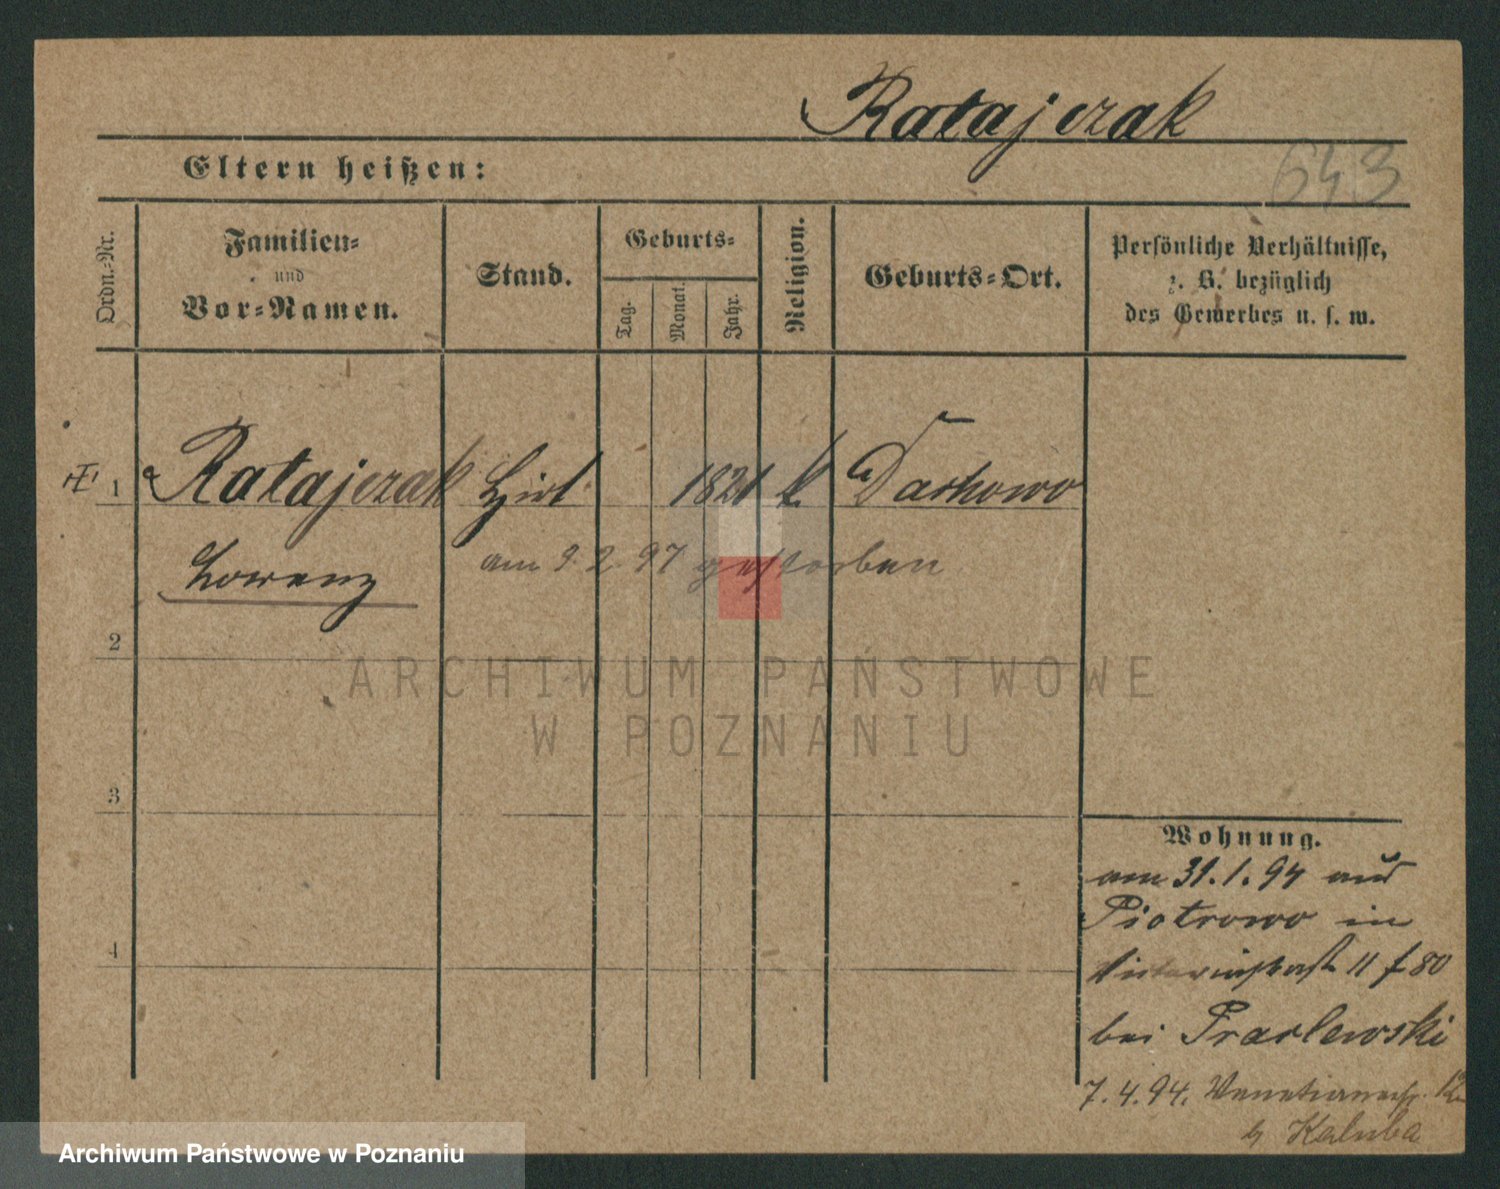 Ratajczak
643
Eltern heißen:
Ordn.-Nr.
Familien-
und
Vor-Namen.
Stand.
Geburts-
Tag.
Monat.
Jahr.
Religion.
Geburts-Ort.
Persönliche Verhältnisse,
z. B. bezüglich
des Gewerbes u. s. w.
1 Ratajczak Hirt 1821 k. Daskowo
Lorenz
am 9.2.97 gestorben
2
ARCHIWUM PAŃSTWOWE
W POZNANIU
3
Wohnung.
am 31.1.94 aus
Piotrowo in
11 f 80
4
bei
7.4.94. Venetianerstr.
b Kaluba
Archiwum Państwowe w Poznaniu